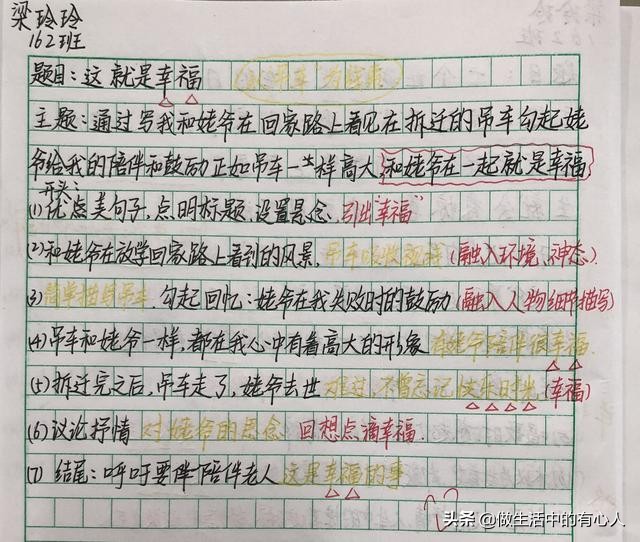 梁玲玲
162班
题目：这就是幸福 以"吊车"为线索
主题：通过写我和姥爷在回家路上看见在拆迁的吊车勾起姥
爷给我的陪伴和鼓励正如吊车一样高大,和姥爷在一起就是幸福
开头：
(1)优点美句子,点明标题,设置悬念,引出"幸福"
(2)和姥爷在放学回家路上看到的风景,吊车吸收视样(融入环境、神态).
(3)简单描写吊车 勾起回忆：姥爷在我失败时的鼓励(融入人物细节描写)
(4)吊车和姥爷一样,都在我心中有着高大的形象 有姥爷陪伴很幸福.
(5)拆迁完之后,吊车走了,姥爷去世 难过,不曾忘记快乐时光(幸福)
(6)议论抒情 对姥爷的思念 回想点滴幸福.
(7)结尾：呼吁要伴陪伴老人 这是幸福的事
头条 @做生活中的有心人